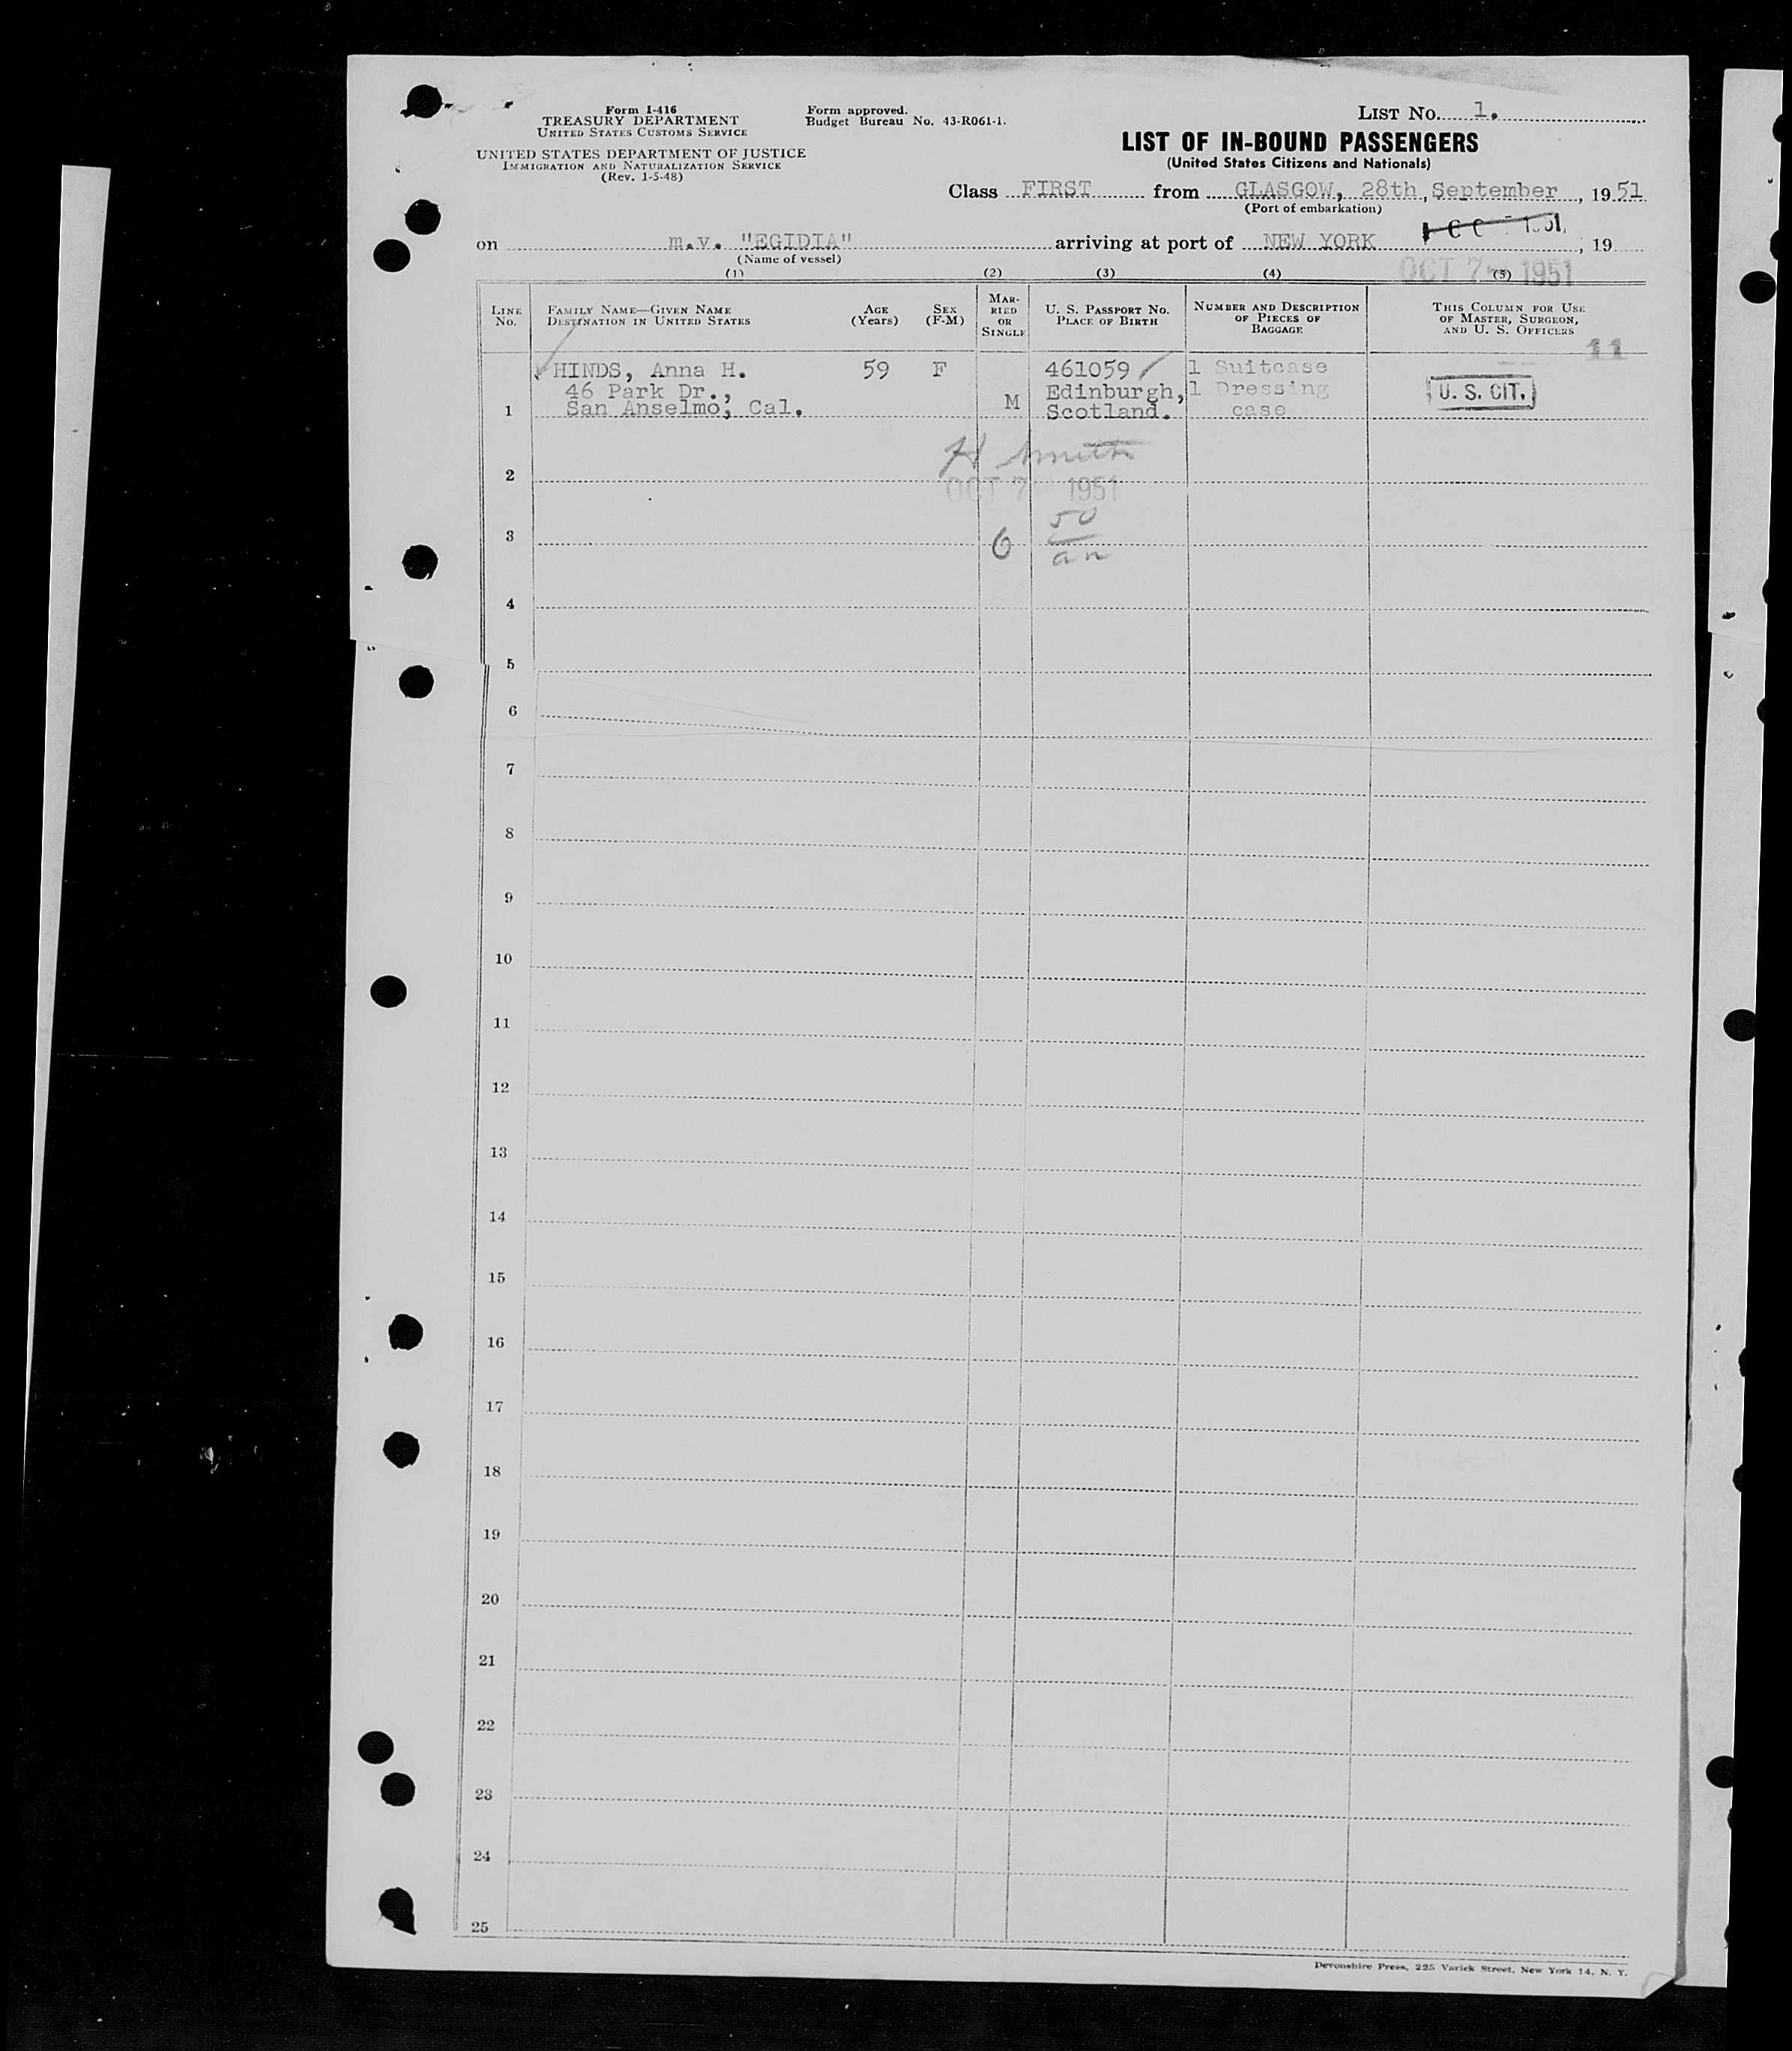 Form I-416
TREASURY DEPARTMENT
UNITED STATES CUSTOMS SERVICE
UNITED STATES DEPARTMENT OF JUSTICE
IMMIGRATION AND NATURALIZATION SERVICE
(Rev. 1-5-48)
Form approved.
Budget Bureau No. 43-R061-1.
LIST No. 1.
LIST OF IN-BOUND PASSENGERS
(United States Citizens and Nationals)
Class FIRST from GLASGOW, 28th, September, 1951
(Port of embarkation)
on m.v. "EGIDIA" arriving at port of NEW YORK, 19
(Name of vessel)
OCT 7 1951
(1) (2) (3) (4) (5)
LINE No.
FAMILY NAME—GIVEN NAME
DESTINATION IN UNITED STATES
AGE (Years)
SEX (F-M)
MARRIED OR SINGLE
U. S. PASSPORT NO.
PLACE OF BIRTH
NUMBER AND DESCRIPTION
OF PIECES OF
BAGGAGE
THIS COLUMN FOR USE
OF MASTER, SURGEON,
AND U. S. OFFICERS
11
HINDS, Anna H. 59 F 461059 1 Suitcase
46 Park Dr., Edinburgh, 1 Dressing U. S. CIT.
1 San Anselmo, Cal. M Scotland. case
H Smith
2
OCT 7 1951
50
3 6
an
4
5
6
7
8
9
10
11
12
13
14
15
16
17
18
19
20
21
22
23
24
25
Devonshire Press, 225 Varick Street, New York 14, N. Y.